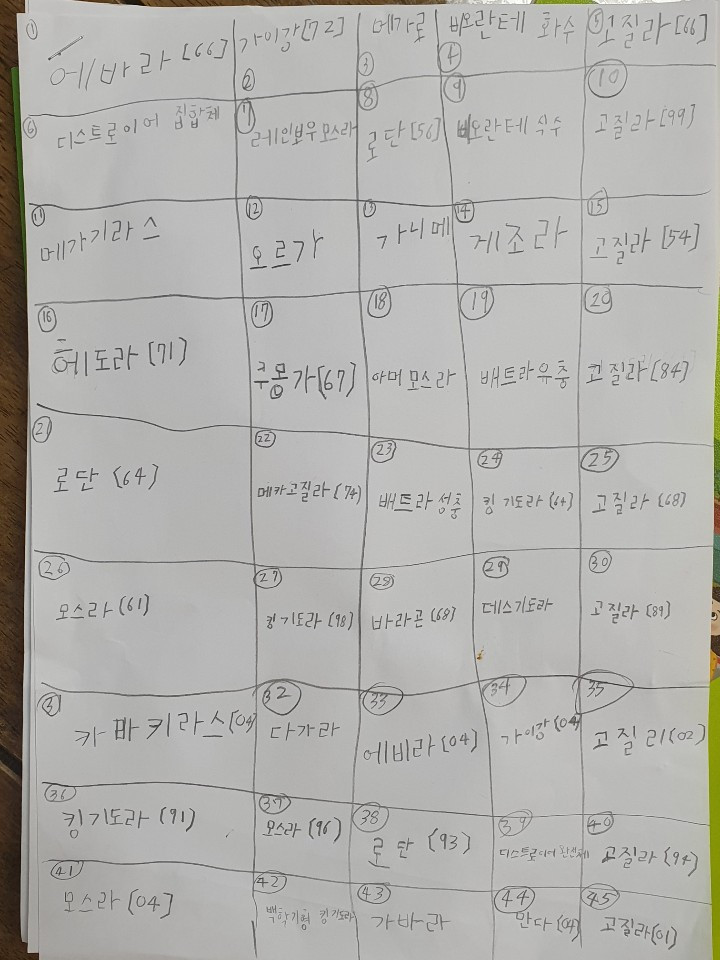 ① 에바라[66]
② 가이강[72]
③ 메가로
④ 비오란테 화수
⑤ 고질라[66]
⑥ 디스트로이어 집합체
⑦ 레인보우 모스라
⑧ 로단[56]
⑨ 비오란테 식수
⑩ 고질라[99]
⑪ 메가기라스
⑫ 오르가
⑬ 가니메
⑭ 게조라
⑮ 고질라[54]
⑯ 헤도라[71]
⑰ 쿠몽가[67]
⑱ 아머 모스라
⑲ 배트라 유충
⑳ 고질라[84]
㉑ 로단 {64}
㉒ 메카고질라 (74)
㉓ 배트라 성충
㉔ 킹 기도라 (64)
㉕ 고질라 (68)
㉖ 모스라 (61)
㉗ 킹 기도라 (98)
㉘ 바라곤 (68)
㉙ 데스기도라
㉚ 고질라 (89)
㉛ 카바키라스(04)
㉜ 다가라
㉝ 에비라 (04)
㉞ 가이강 (04)
㉟ 고질리(02)
㊱ 킹기도라 (91)
㊲ 모스라 (96)
㊳ 로단 (93)
㊴ 디스트로이어 완전체
㊵ 고질라 (94)
㊶ 모스라 (04)
㊷ 백학기형 킹기도라
㊸ 가바라
㊹ 만다 (04)
㊺ 고질라(01)